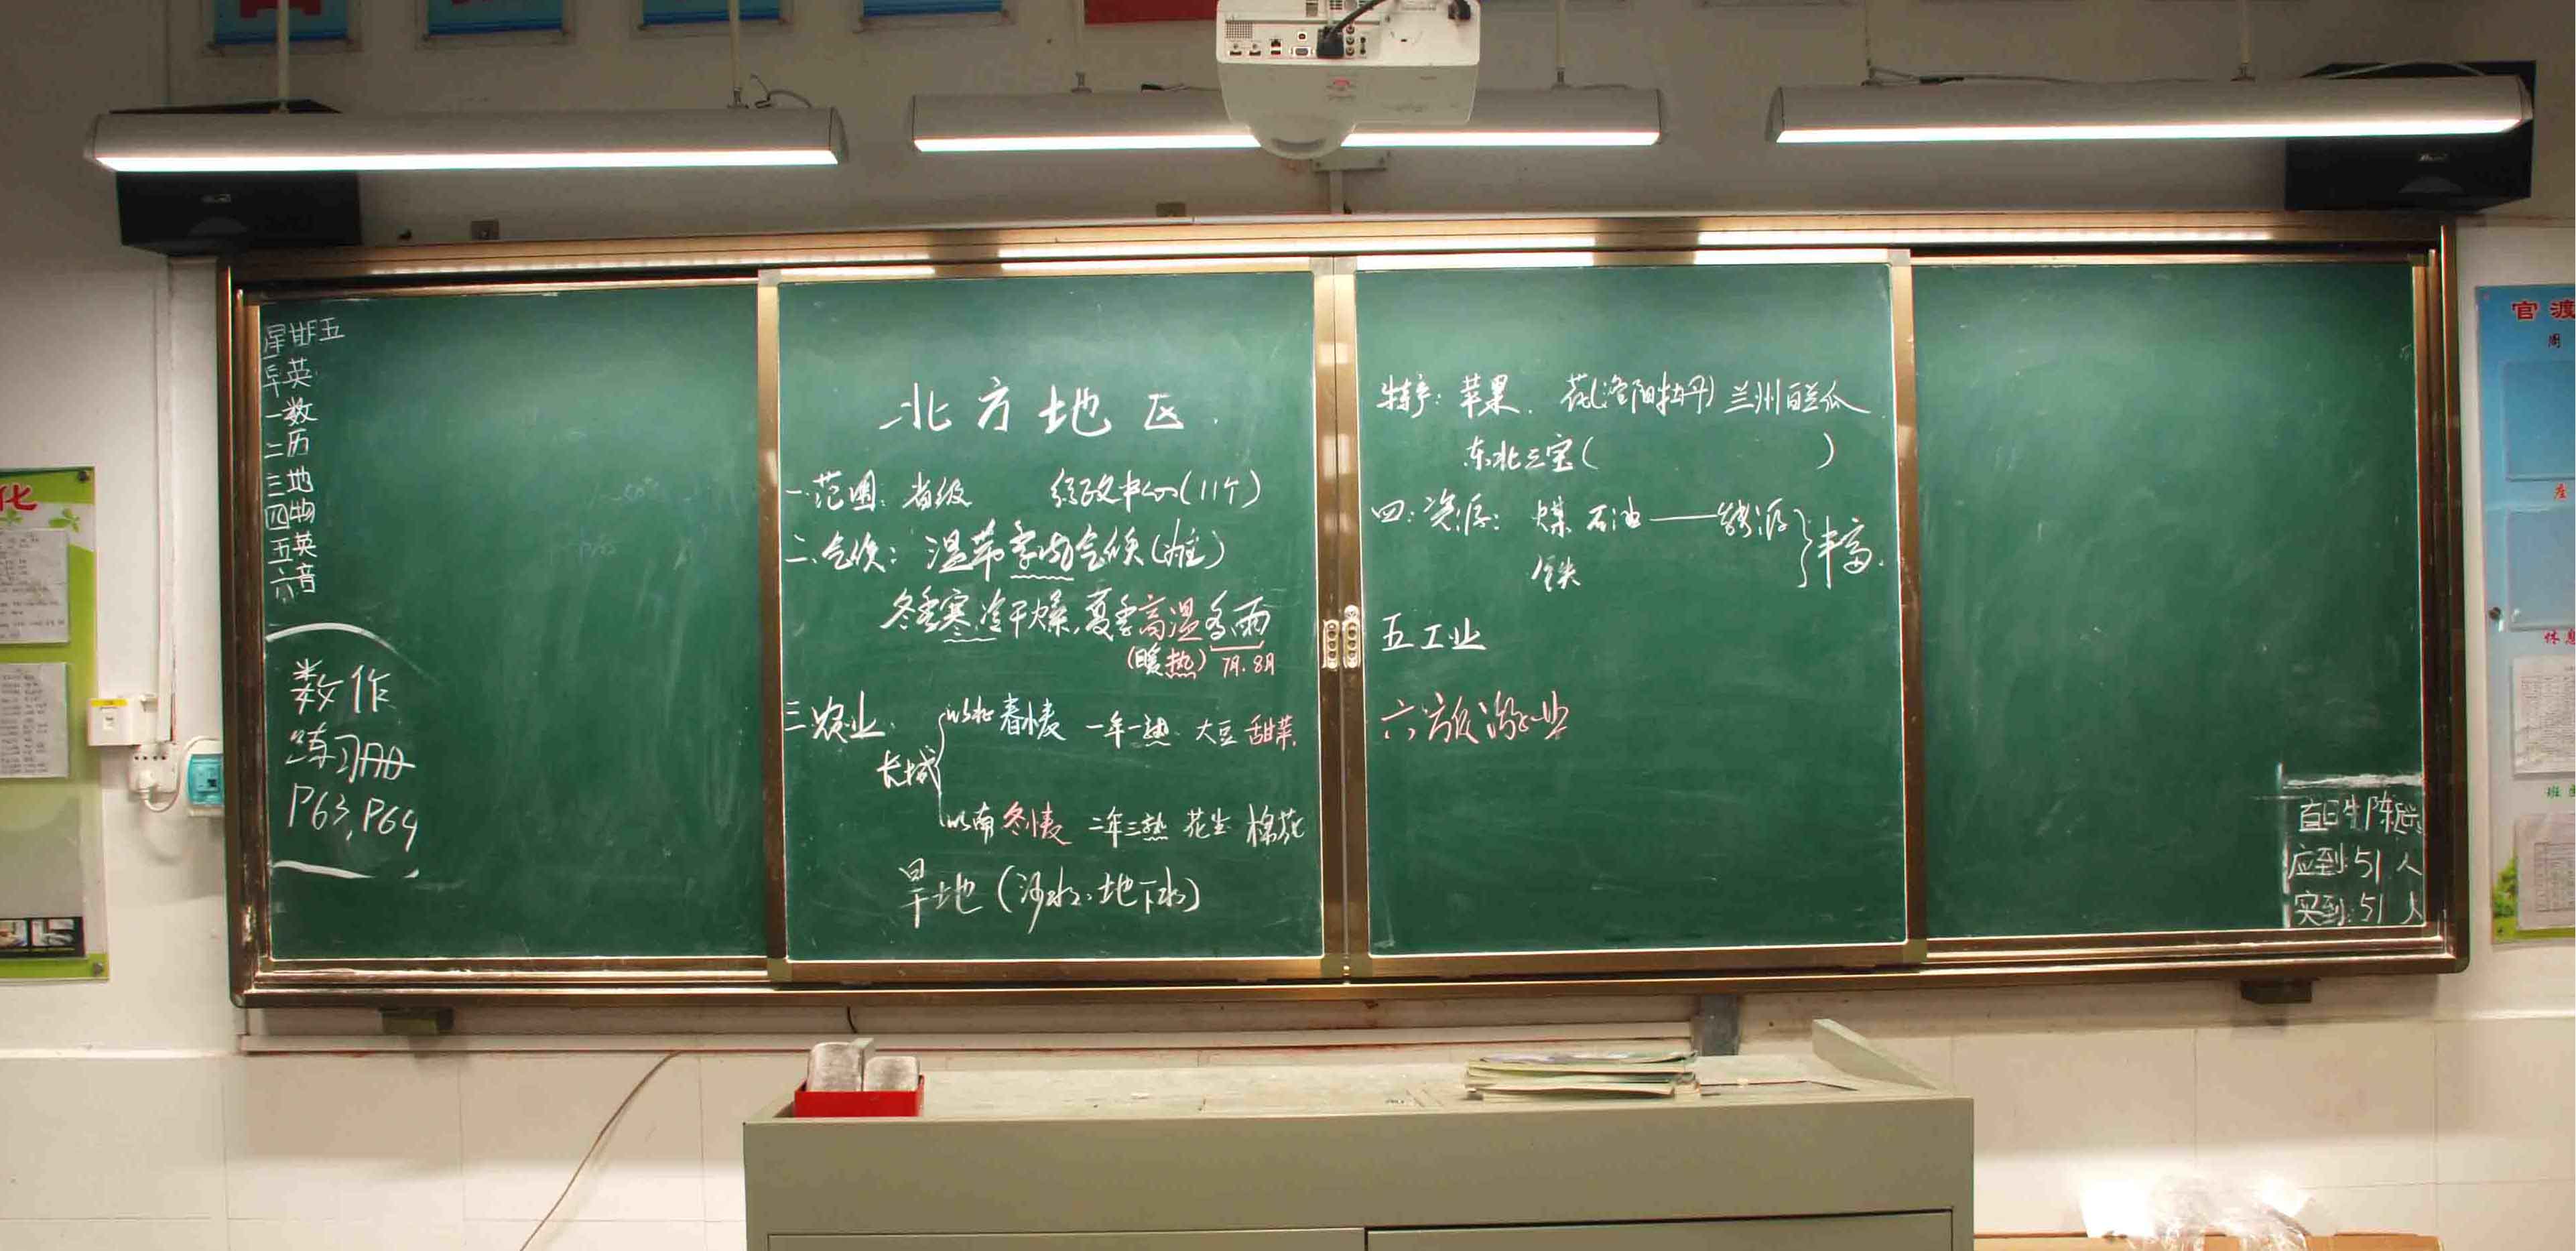 星期五
早英
一数
二历
三地
四物
五英
六音
数作
练习册
P63, P64
北方地区
一.范围: 省级 行政中心(11个)
二.气候: 温带季风气候(主)
冬季寒冷干燥,夏季高温多雨
(暖热) 7月.8月
三农业.
以北 春小麦 一年一熟 大豆 甜菜.
长城
以南 冬小麦 二年三熟 花生 棉花
旱地 (河水、地下水)
特产: 苹果. 花(洛阳牡丹) 兰州白兰瓜
东北三宝( )
四: 资源: 煤 石油——能源 丰富.
铁
五工业
六旅游业
值日生陈
应到:51人
实到:51人
官渡
周
座
休息
班
化